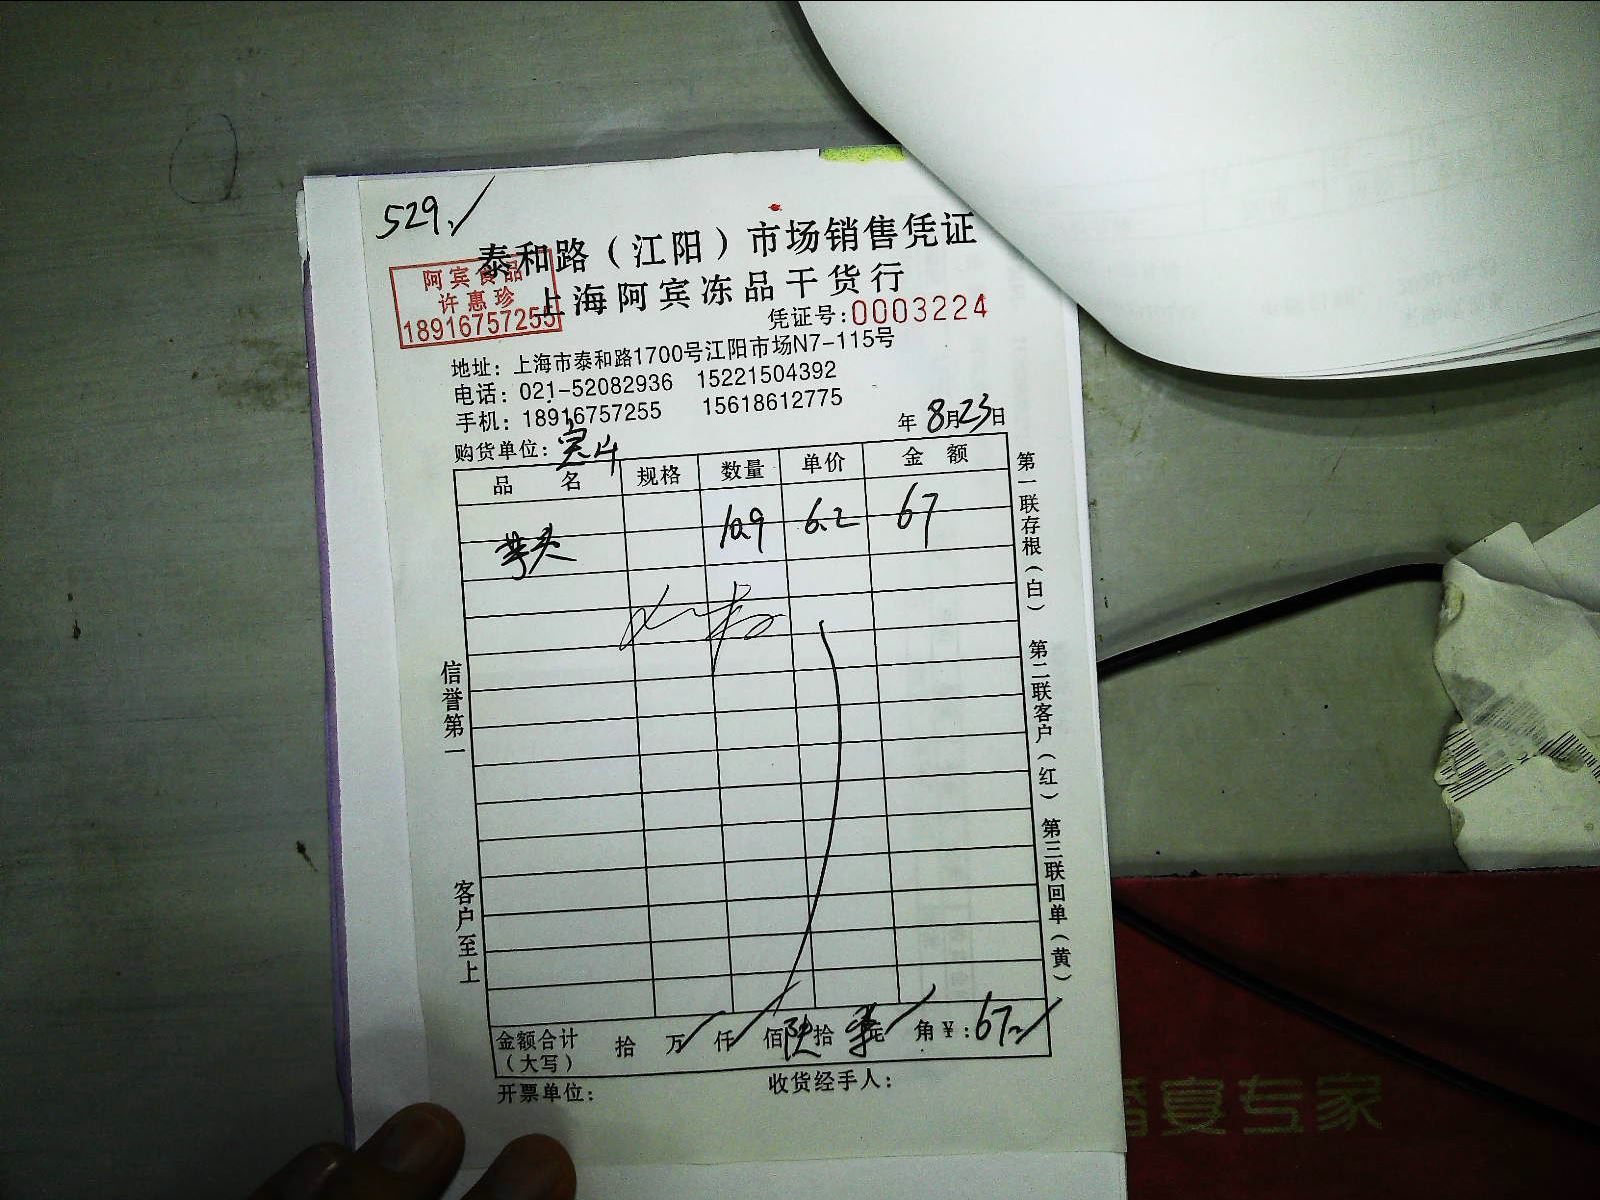 529.
泰和路（江阳）市场销售凭证
上海阿宾冻品干货行
阿宾食品
许惠珍
18916757255
凭证号:0003224
地址：上海市泰和路1700号江阳市场N7-115号
电话：021-52082936 15221504392
手机：18916757255 15618612775
年8月23日
购货单位：
品 名 规格 数量 单价 金 额
芋头 10.9 6.2 67
信誉第一
客户至上
第一联存根（白） 第二联客户（红） 第三联回单（黄）
金额合计（大写） 拾 万 仟 佰 陆拾 柒元 角 ¥:67.
开票单位： 收货经手人：
婚宴专家